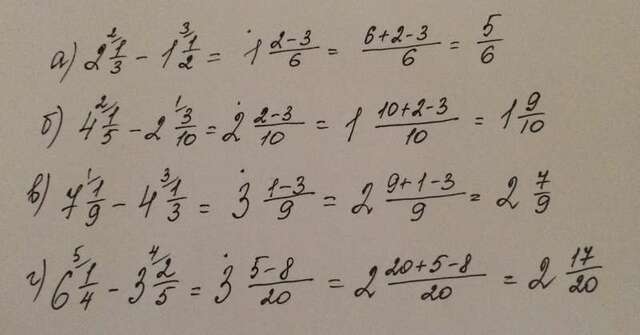 а) 2 2/ 1/3 - 1 3/ 1/2 = 1 (2-3)/6 = (6+2-3)/6 = 5/6
б) 4 2/ 1/5 - 2 1/ 3/10 = 2 (2-3)/10 = 1 (10+2-3)/10 = 1 9/10
в) 7 1/ 1/9 - 4 3/ 1/3 = 3 (1-3)/9 = 2 (9+1-3)/9 = 2 7/9
г) 6 5/ 1/4 - 3 4/ 2/5 = 3 (5-8)/20 = 2 (20+5-8)/20 = 2 17/20